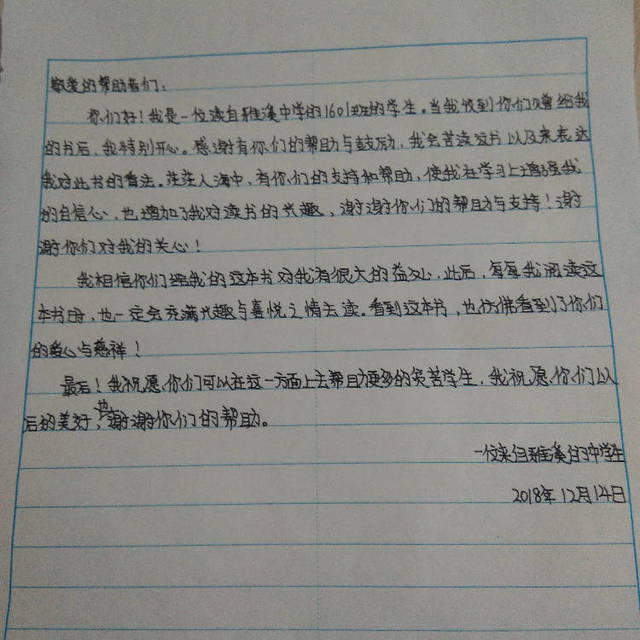 敬爱的帮助者们：
你们好！我是一位读自雅溪中学的1601班的学生。当我收到你们赠给我
的书后，我特别开心。感谢有你们的帮助与鼓励，我会苦读这书以及来表达
我对此书的看法。茫茫人海中，有你们的支持和帮助，使我在学习上增强我
的自信心，也增加了我对读书的兴趣，谢谢你们的帮助与支持！谢
谢你们对我的关心！
我相信你们送我的这本书对我有很大的益处，此后，每每我阅读这
本书时，也一定会充满兴趣与喜悦之情去读。看到这本书，也仿佛看到了你们
的爱心与慈祥！
最后！我祝愿你们可以在这一方面上去帮助更多的贫苦学生，我祝愿你们以
后的美好，也谢谢你们的帮助。
一位来自雅溪的中学生
2018年12月14日